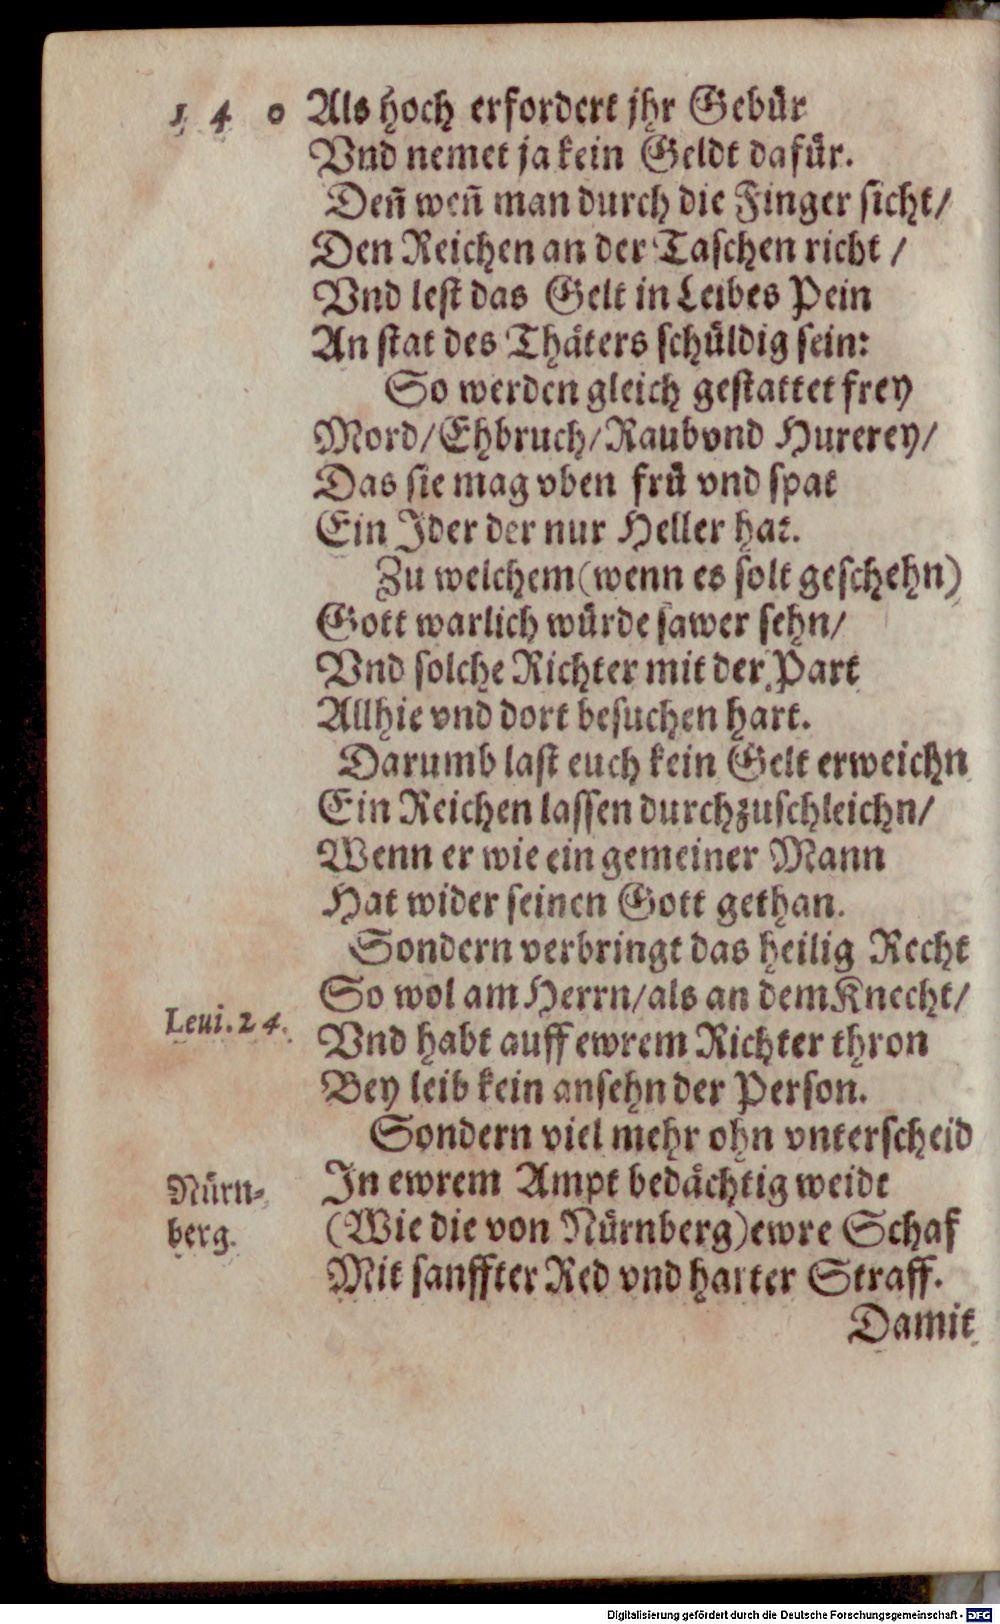 1 4 0 Als hoch erfordert jhr Gebür
Vnd nemet ja kein Geldt dafür.
Deñ weñ man durch die Finger sicht/
Den Reichen an der Taschen richt /
Vnd lest das Gelt in Leibes Pein
An stat des Thäters schüldig sein:
So werden gleich gestattet frey
Mord/Ehbruch/Raub vnd Hurerey/
Das sie mag vben frü vnd spat
Ein Jder der nur Heller hat.
Zu welchem (wenn es solt geschehn)
Gott warlich würde sawer sehn/
Vnd solche Richter mit der Part
Allhie vnd dort besuchen hart.
Darumb last euch kein Gelt erweichn
Ein Reichen lassen durchzuschleichn/
Wenn er wie ein gemeiner Mann
Hat wider seinen Gott gethan.
Sondern verbringt das heilig Recht
So wol am Herrn/als an dem Knecht/
Leui.24. Vnd habt auff ewrem Richter thron
Bey leib kein ansehn der Person.
Sondern viel mehr ohn vnterscheid
Nürn- In ewrem Ampt bedächtig weidt
berg. (Wie die von Nürnberg) ewre Schaf
Mit sanffter Red vnd harter Straff.
Damit
Digitalisierung gefördert durch die Deutsche Forschungsgemeinschaft - DFG